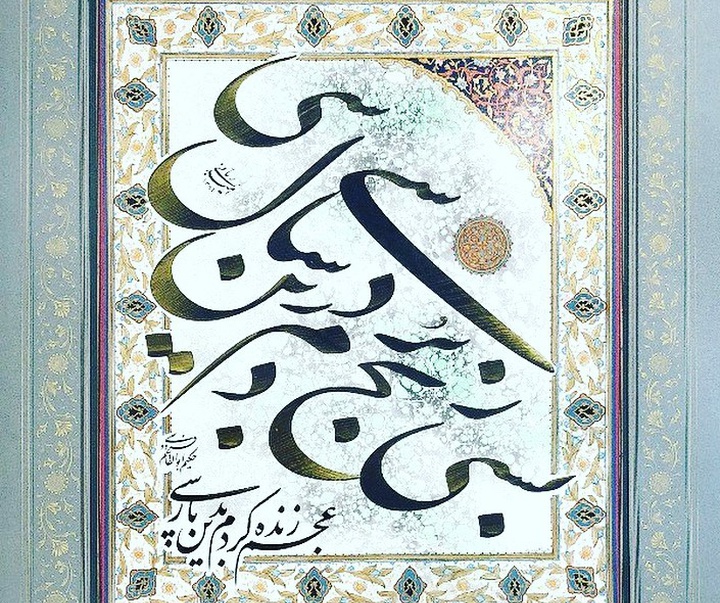 بسی رنج بردم درین سال سی
حکیم ابوالقاسم فردوسی
عجم زنده کردم بدین پارسی